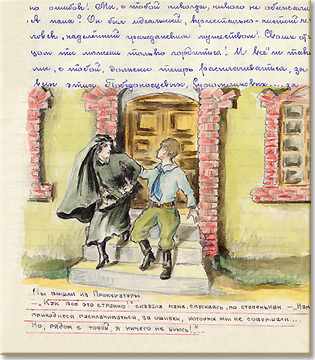 но ошибок! Мы, с тобой никогда, никого не обижали.
А папа? Он был идеальный, кристально-чистый че-
ловек, наделённый гражданским мужеством! Своим от-
цом ты можешь только гордиться! И всё же
мы, с тобой, должны теперь расплачиваться, за
этих Победоносцевых, .... за
Мы вышли из Прокуратуры
— „Как всё это странно" сказала мама, спускаясь, по ступенькам. — „Нам
приходится расплачиваться, за ошибки, которых мы не совершали....
Но, рядом с тобой, я ничего не боюсь!"